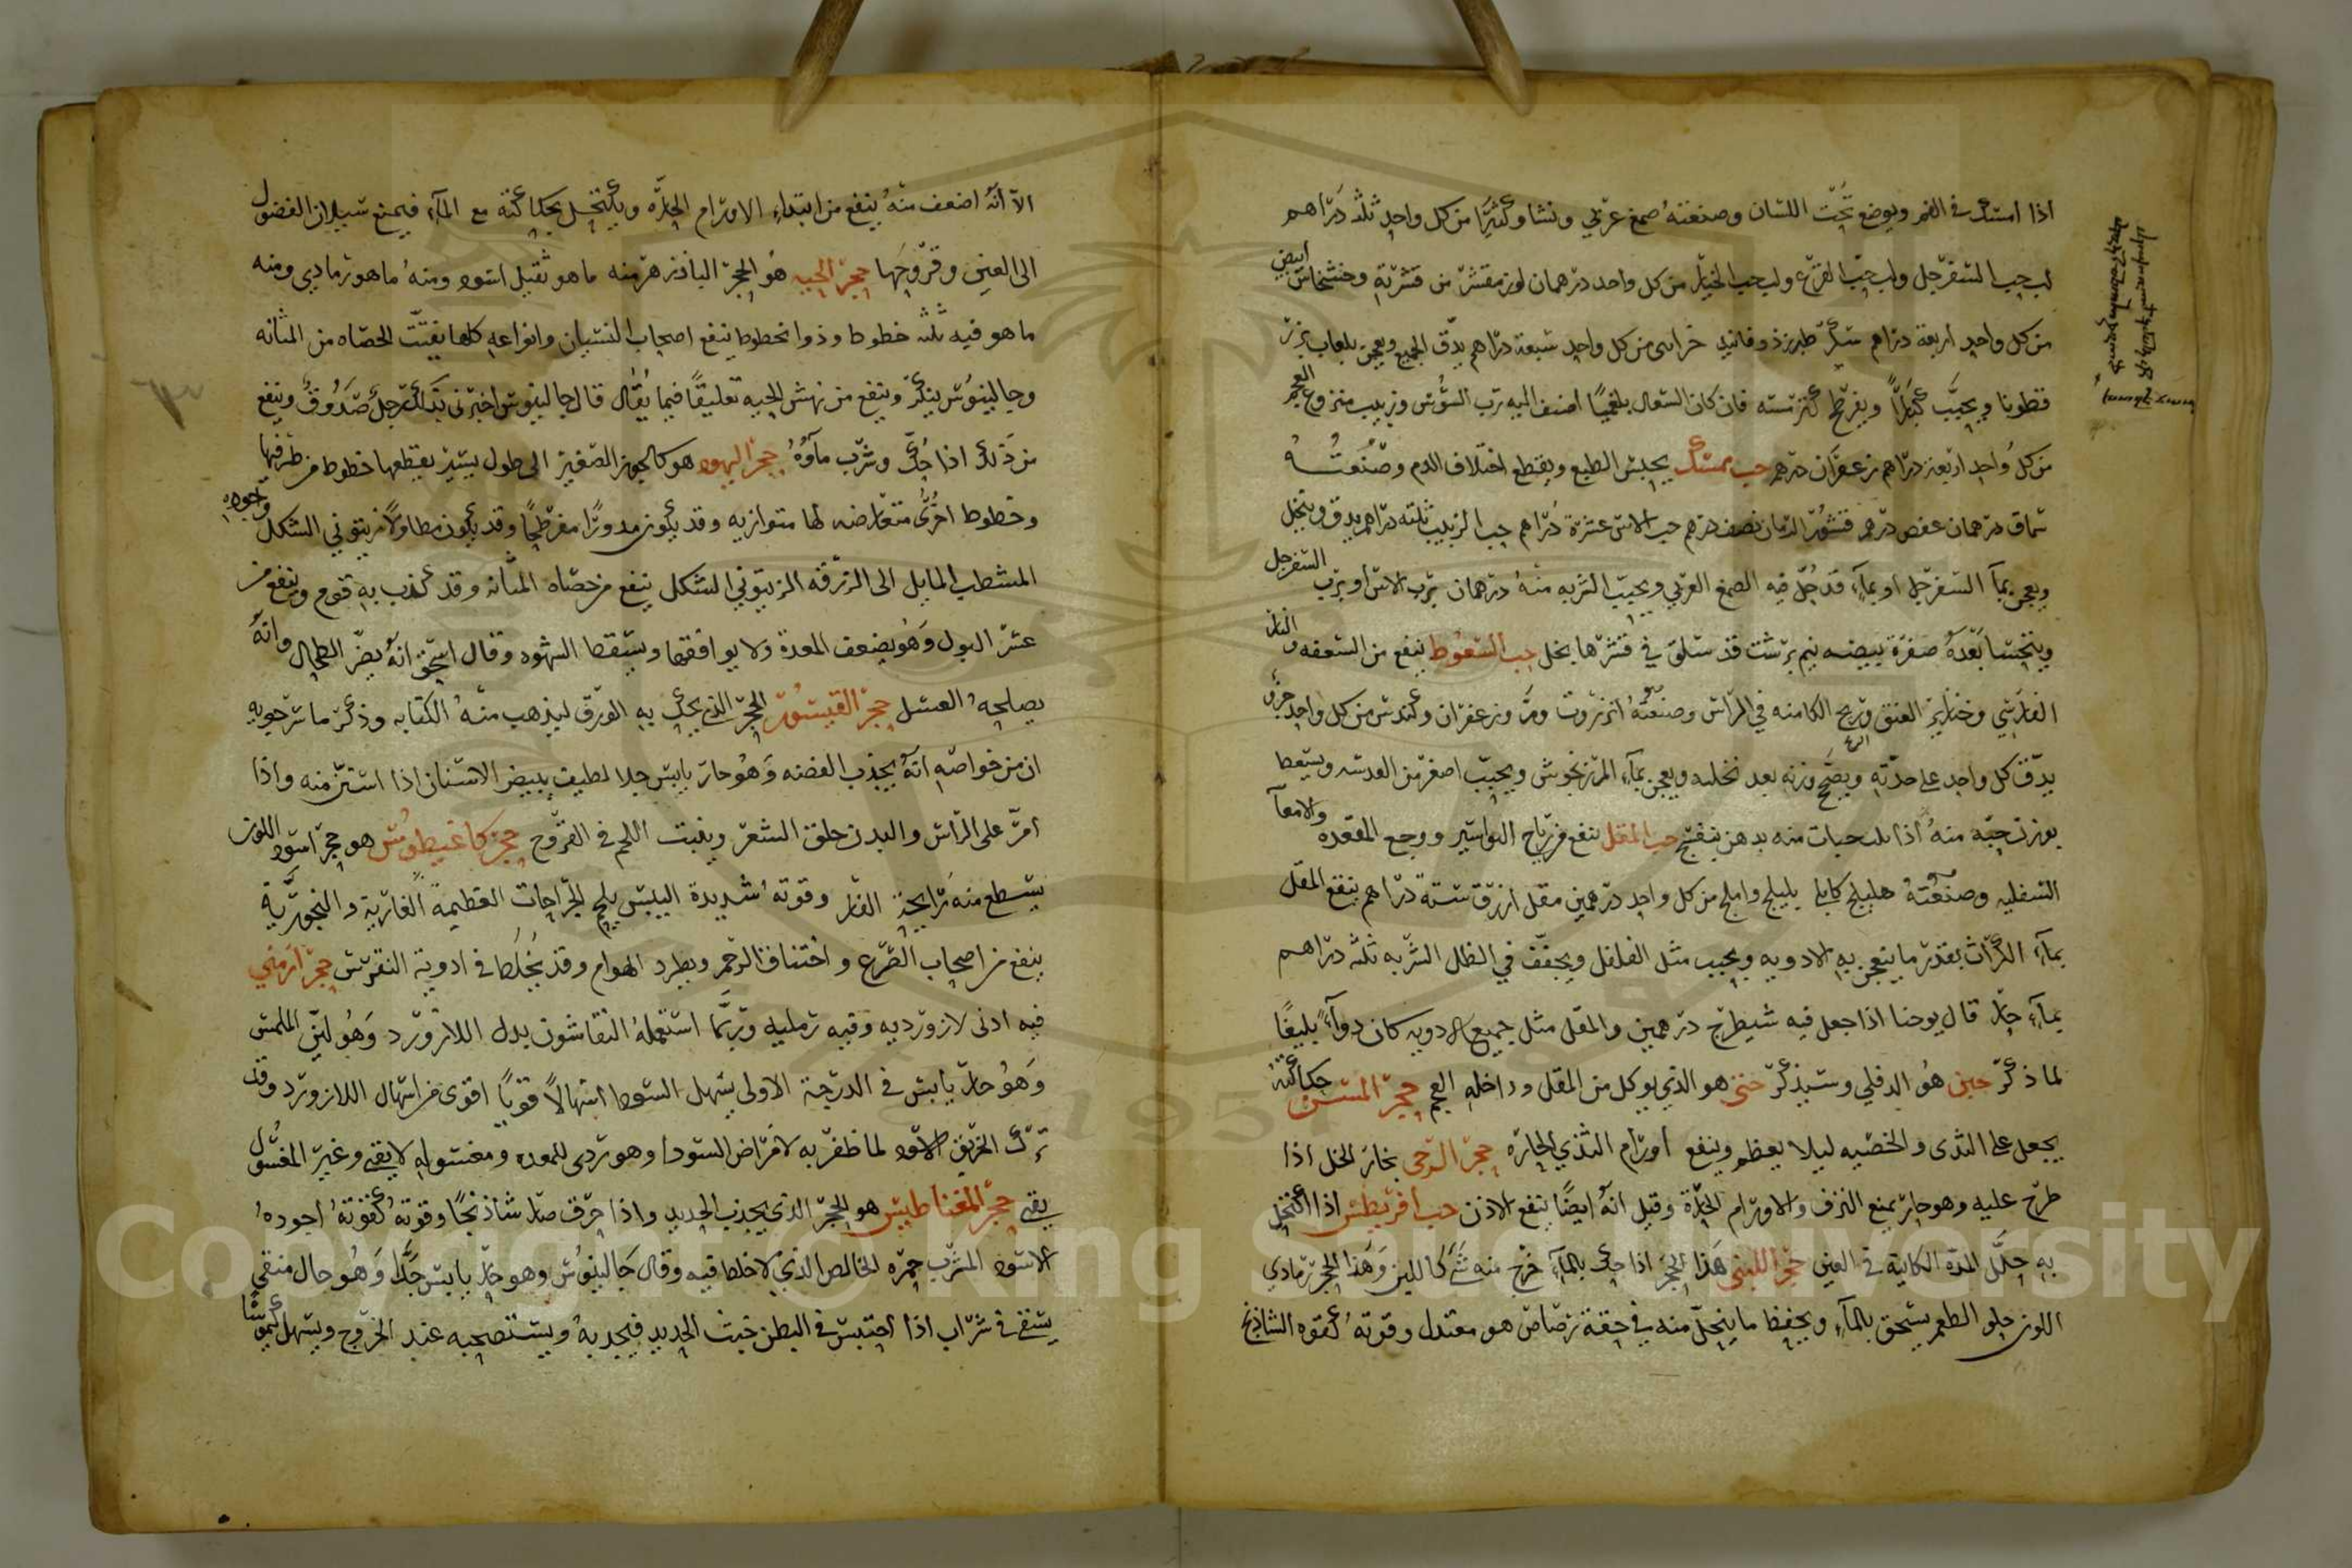 اذا امسك في الفم ويوضع تحت اللسان وصنعته صمغ عربي ونشا وكثيرا من كل واحد ثلثه دراهم
لب حب السفرجل ولب حب القرع ولب حب الخيار من كل واحد درهمان لوز مقشر من قشريه وخشخاش ابيض
من كل واحد اربعة دراهم سكر طبرزد وفانيد خزاني من كل واحد سبعة دراهم يدق الجميع ويعجن بلعاب بزر
قطونا ويحبب كبارا ويفرطح كترمسه فان كان السعال بلغميا اضف اليه رب السوس وزبيب منزوع العجم
من كل واحد اربعة دراهم زعفران درهم حب ممسك يحبس الطبع ويقطع اختلاف الدم وصنعته
سماق درهمان عفص درهم قشور الرمان نصف درهم حب الاس عشرة دراهم حب الزبيب ثلثه دراهم يدق وينخل
ويعجن بماء السفرجل او بماء قد حل فيه الصمغ العربي ويحبب الشربه منه درهمان برب الاس او برب السفرجل
ويتحسا بعده صفرة بيضه نيم برشت قد سلق في قشرها بخل حب السعوط ينفع من السعفه و
الفارسي وخنازير العنق وريح الكامنه في الراس وصنعته انزروت ومر وزعفران وكندس من كل واحد جزؤ
يدق كل واحد على حدته ويصح وزنه بعد نخله ويعجن بماء المرزنجوش ويحبب اصغر من العدسه ويسعط
بوزن حبه منه اذا حبات منه بدهن بنفسج حب المقل ينفع من رياح البواسير ووجع المقعده والامعآ
السفليه وصنعته هليلج كابلي بليلج واملج من كل واحد درهمين مقل ازرق ستة دراهم ينقع المقل
بماء الكراث بقدر ما ينعجن به الادويه ويحبب مثل الفلفل ويجفف في الظل الشربه ثلثه دراهم
بماء حار قال يوحنا اذا جعل فيه شيطرج درهمين والمقل مثل جميع الادويه كان دواء بليغا
لما ذكر حبن هو الدفلي وسيذكر حتي هو الذي يوكل من المقل وداخله العجم حجر المسن حكاكته
يجعل على الثدي والخصيه ليلا يعظم وينفع اورام الثدي الحاره حجر الرحى بخار الخل اذا
طرح عليه وهو حار يمنع النزف والاورام الحارة وقيل انه ايضا ينفع الاذن حب افريطس اذا اكتحل
به حلل المدة الكاينة في العين حجر اللبني هذا الحجر اذا حك بالماء خرج منه شئ كاللبن وهذا الحجر رمادي
اللون حلو الطعم يسحق بالماء ويحفظ ما ينحل منه في حقة رصاص هو معتدل وقوته كقوه الشاذنج
الا انه اضعف منه ينفع من ابتداء الاورام الحارة ويكتحل بحكاكته مع الماء فيمنع سيلان الفضول
الى العين وقروحها حجر الحيه هو الحجر البادزهر منه ما هو ثقيل اسود ومنه ما هو رمادي ومنه
ما هو فيه ثلثه خطوط وذوا الخطوط ينفع اصحاب النسيان وانواعه كلها يفتت الحصاه من المثانه
وجالينوس ينكر وينفع من نهش الحيه تعليقا فيما يقال قال جالينوس اخبرني بذلك رجل صدوق وينفع
من ذلك اذا حك وشرب ماؤه حجر اليهود هو كالجوز الصغير الى طول يسير يقطعها خطوط من طرفيها
وخطوط اخرى متعارضه لها متوازيه وقد يكون مدورا مفرطحا وقد يكون مطاولا زيتوني الشكل واجوده
المشطب المايل الى الزرقه الزيتوني الشكل ينفع من حصاه المثانه وقد كذب به قوم وينفع من
عسر البول وهو يضعف المعدة ولا يوافقها ويسقط الشهوه وقال اسحق انه يضر الطحال وانه
يصلحه العسل حجر القيشور الحجر الذي يحك به الورق ليذهب منه الكتابه وذكر ماسرجويه
ان من خواصه انه يجذب الفضه وهو حار يابس جلا لطيف يبيض الاسنان اذا استن منه واذا
امر على الراس والبدن حلق الشعر وينبت اللحم في القروح حجر كاغيطوس هو حجر اسود اللون
يسطع منه رايحة القار وقوته شديدة اليبس يلحم الجراحات العظيمة الغاربية و
ينفع من اصحاب الصرع و اختناق الرحم ويطرد الهوام وقد يخلط في ادوية النقرس حجر ارمني
فيه ادنى لازورديه وفيه رمليه وربما استعمله النقاشون بدل اللازورد وهو لين الملمس
وهو حار يابس في الدرجة الاولى يسهل السودا اسهالا قويا اقوى من اسهال اللازورد وقد
ترك الخربق الاسود لما ظفر به لامراض السودا وهو ردي للمعده ومغسوله لا يقي وغير المغسول
يقي حجر المغناطيس هو الحجر الذي يجذب الحديد واذا حرق صار شاذنجا وقوته كقوته اجوده
الاسود المشرب حمره الخالص الذي لا خلط فيه وقال جالينوس وهو حار يابس جدا وهو حال منقي
يسقى في شراب اذا احتبس في البطن خبث الحديد فيجذبه ويستصحبه عند الخروج ويسهل كيموسا